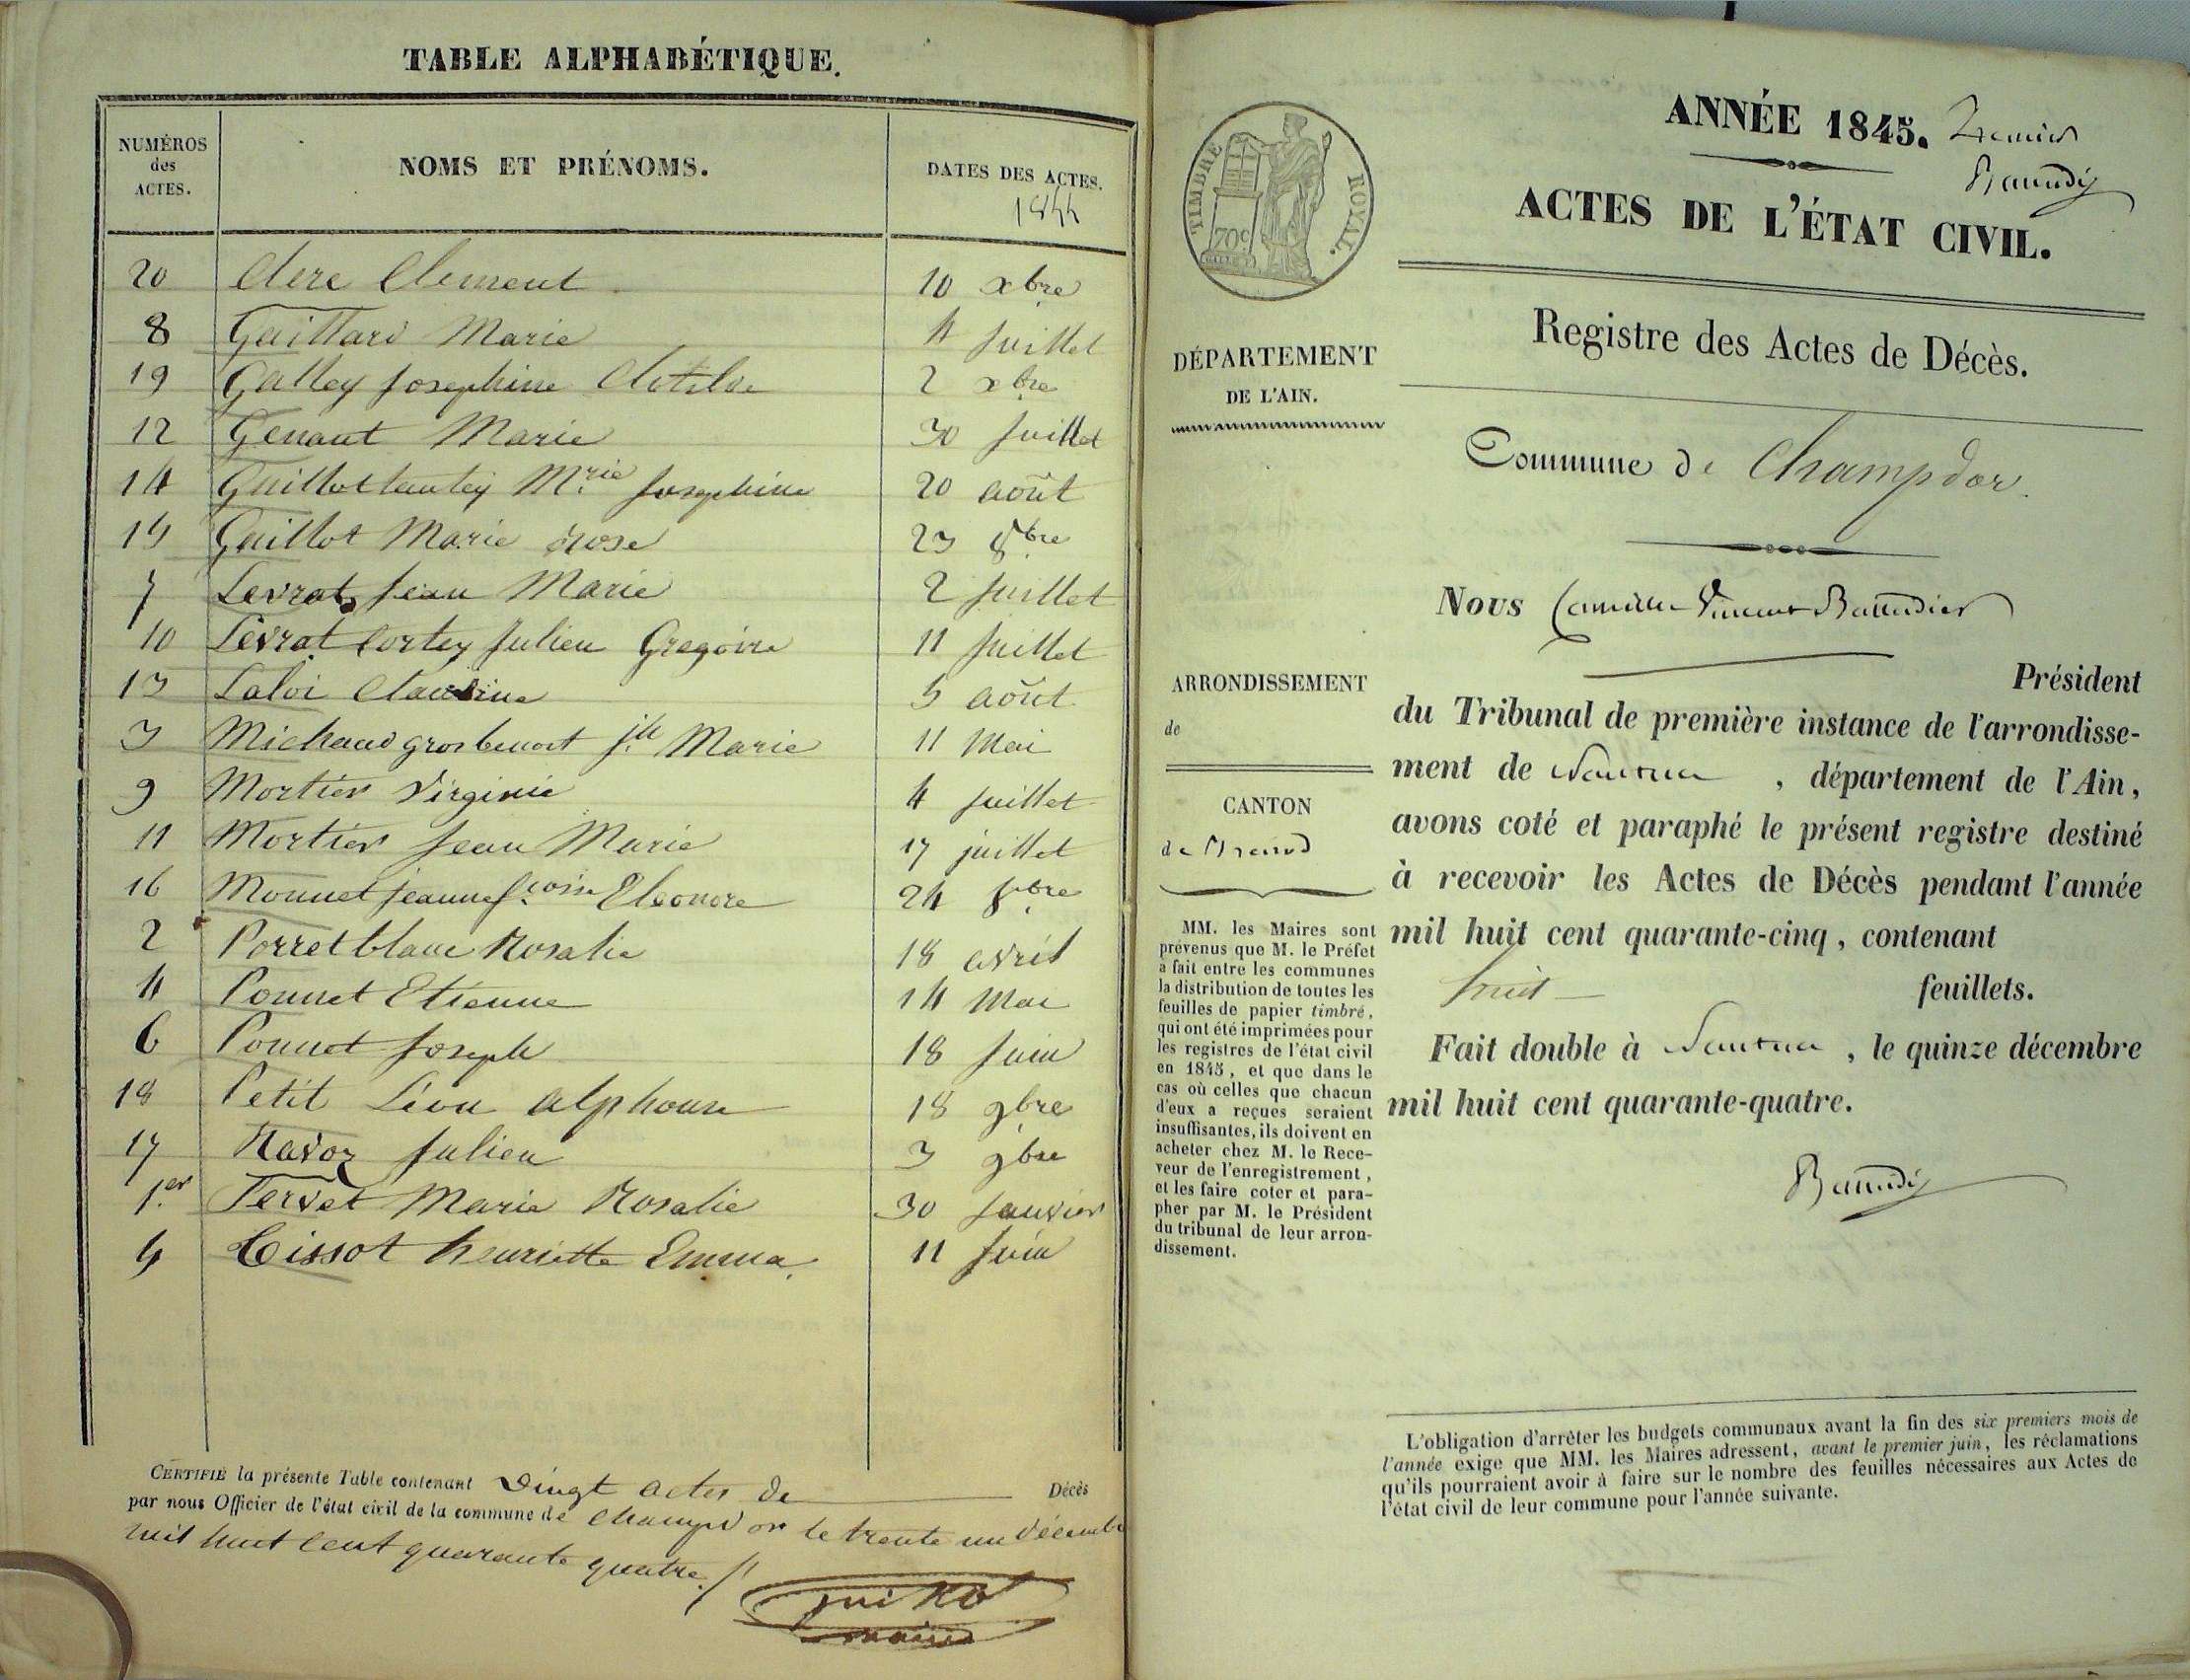 TABLE ALPHABÉTIQUE.
NUMÉROS
des
ACTES.
NOMS ET PRÉNOMS.
DATES DES ACTES.
1844
20 Clerc Clement 10 xbre
8 Gaillard Marie 4 juillet
19 Galley Josephine Clotilde 2 xbre
12 Genant Marie 30 juillet
14 Guillot lantey Mrie Josephine 20 août
15 Guillot Marie rose 23 8bre
7 Levrat Jean Marie 2 juillet
10 Levrat Cortey Julien Gregoire 11 juillet
13 Laloi Claudine 5 août
3 Michaud grosbenoit jh Marie 11 Mai
9 Mortier Virginie 4 juillet
11 Mortier Jean Marie 17 juillet
16 Monnet jeanne fcoise Eleonore 24 8bre
2 Porret blanc Rosalie 18 avril
4 Ponnet Etienne 14 Mai
6 Ponnet Joseph 18 Juin
18 Petit Léon alphonse 18 9bre
17 Ravoz Julien 3 9bre
1.er Tervet Marie Rosalie 30 Janvier
5 Tissot henriette Emma 11 Juin
CERTIFIÉ la présente Table contenant vingt actes de Décès
par nous Officier de l'état civil de la commune de Champdor le trente un décembre
mil huit cent quarante quatre
Guillot
maire
TIMBRE ROYAL.
70c
ANNÉE 1845. Premier
Baudi
ACTES DE L'ÉTAT CIVIL.
Registre des Actes de Décès.
DÉPARTEMENT
DE L'AIN.
Commune de Champdor.
ARRONDISSEMENT
de
CANTON
de Brenod
MM. les Maires sont
prévenus que M. le Préfet
a fait entre les communes
la distribution de toutes les
feuilles de papier timbré,
qui ont été imprimées pour
les registres de l'état civil
en 1845, et que dans le
cas où celles que chacun
d'eux a reçues seraient
insuffisantes, ils doivent en
acheter chez M. le Rece-
veur de l'enregistrement,
et les faire coter et para-
pher par M. le Président
du tribunal de leur arron-
dissement.
Nous Camille Vincent
Président
du Tribunal de première instance de l'arrondisse-
ment de Nantua, département de l'Ain,
avons coté et paraphé le présent registre destiné
à recevoir les Actes de Décès pendant l'année
mil huit cent quarante-cinq, contenant
huit feuillets.
Fait double à Nantua, le quinze décembre
mil huit cent quarante-quatre.
L'obligation d'arrêter les budgets communaux avant la fin des six premiers mois de
l'année exige que MM. les Maires adressent, avant le premier juin, les réclamations
qu'ils pourraient avoir à faire sur le nombre des feuilles nécessaires aux Actes de
l'état civil de leur commune pour l'année suivante.